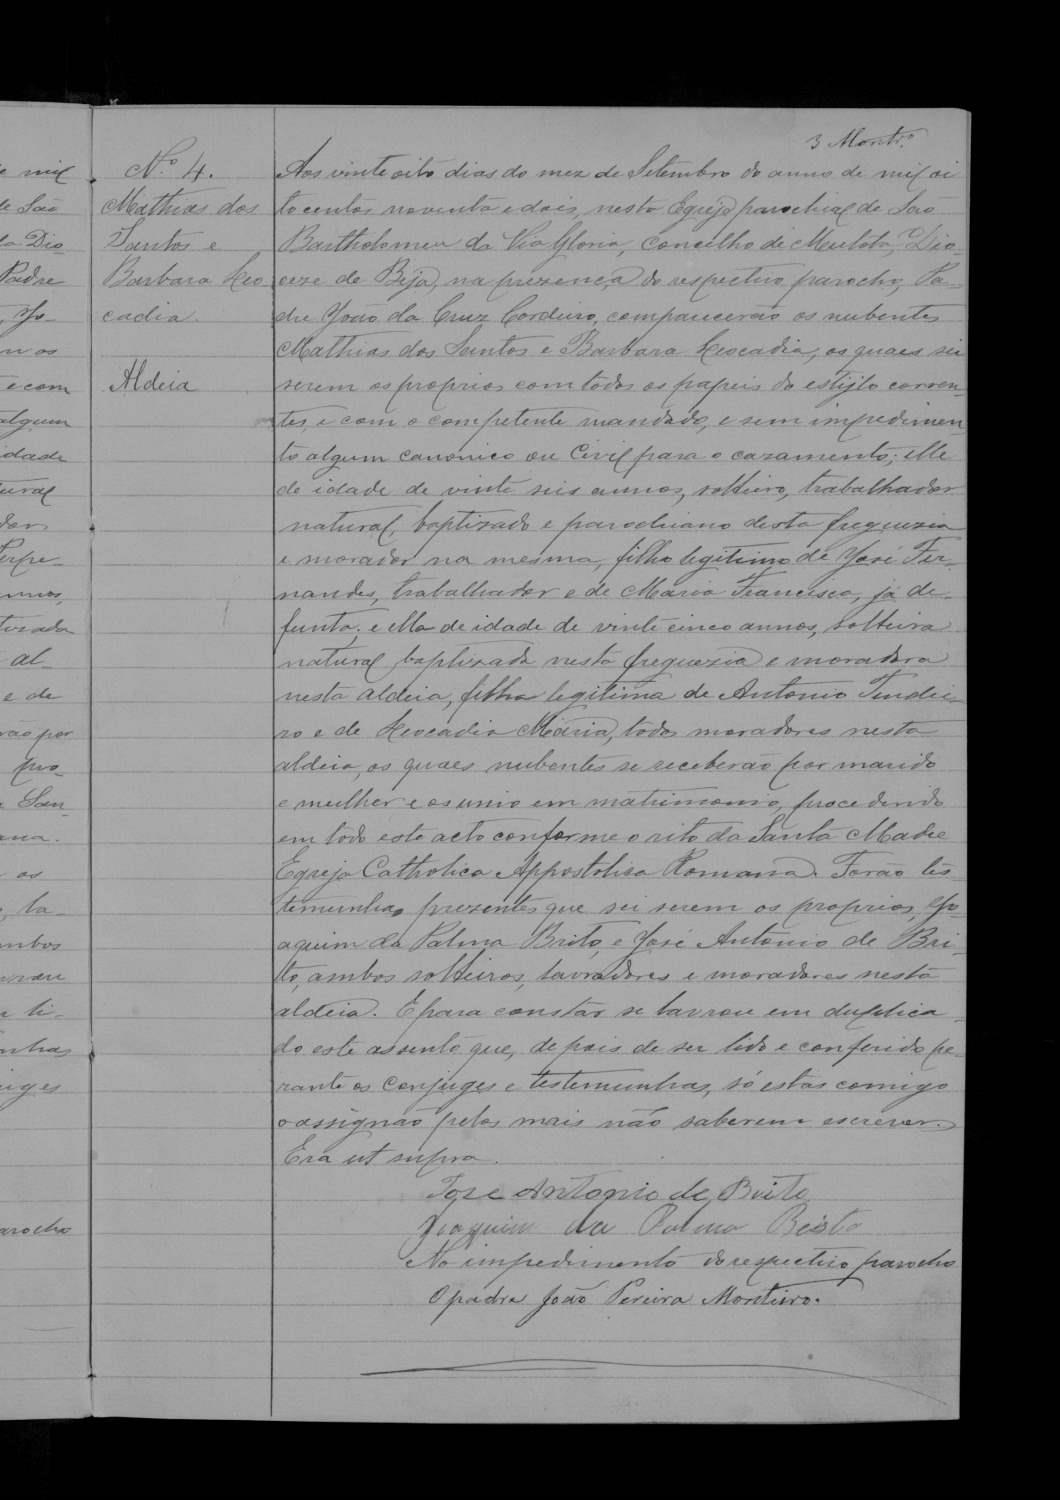 3 Montro.
Nº 4.
Mathias dos
Santos e
Barbara Leo
cadia.
Aldeia
Aos vinte oito dias do mez de Setembro do anno de mil oi
tocentos noventa e dois, nesta Egreja parochial de São
Bartholomeu da Via Gloria, Concelho de Mertola, Dio-
ceze de Beja, na prezença do respectivo parocho, Pa-
dre João da Cruz Cordeiro, comparecerão os nubentes
Mathias dos Santos e Barbara Leocadia, os quaes sei
serem os proprios com todos os papeis do estijlo corren-
tes, e com o competente mandado, e sem impedimen-
to algum canonico ou Civil para o cazamento; elle
de idade de vinte seis annos, solteiro, trabalhador
natural, baptizado e parochiano desta freguezia
e morador na mesma, filho legitimo de José Fer-
nandes, trabalhador e de Maria Francisca, já de-
funta; e ella de idade de vinte cinco annos, solteira
natural baptizada nesta freguezia e moradora
nesta aldeia, filha legitima de Antonio Tindei-
ro e de Leocadia Maria, todos moradores nesta
aldeia, os quaes nubentes se receberão por marido
e mulher e os unio em matrimonio, procedendo
em todo este acto conforme o rito da Santa Madre
Egreja Catholica Appostolisa Romana. Forão tes-
temunhas prezentes que sei serem os proprios, Jo-
aquim da Palma Brito, e José Antonio de Bri-
to, ambos solteiros, lavradores e moradores nesta
aldeia. E para constar se lavrou em duplica-
do este assento que, depois de ser lido e conferido pe-
rante os conjuges e testemunhas, só estas comigo
o assignão pelos mais não saberem escrever.
Era ut supra.
Jose Antonio de Brito
Joaquim da Palma Brito
No impedimento do respectivo parocho
O padre João Pereira Monteiro.